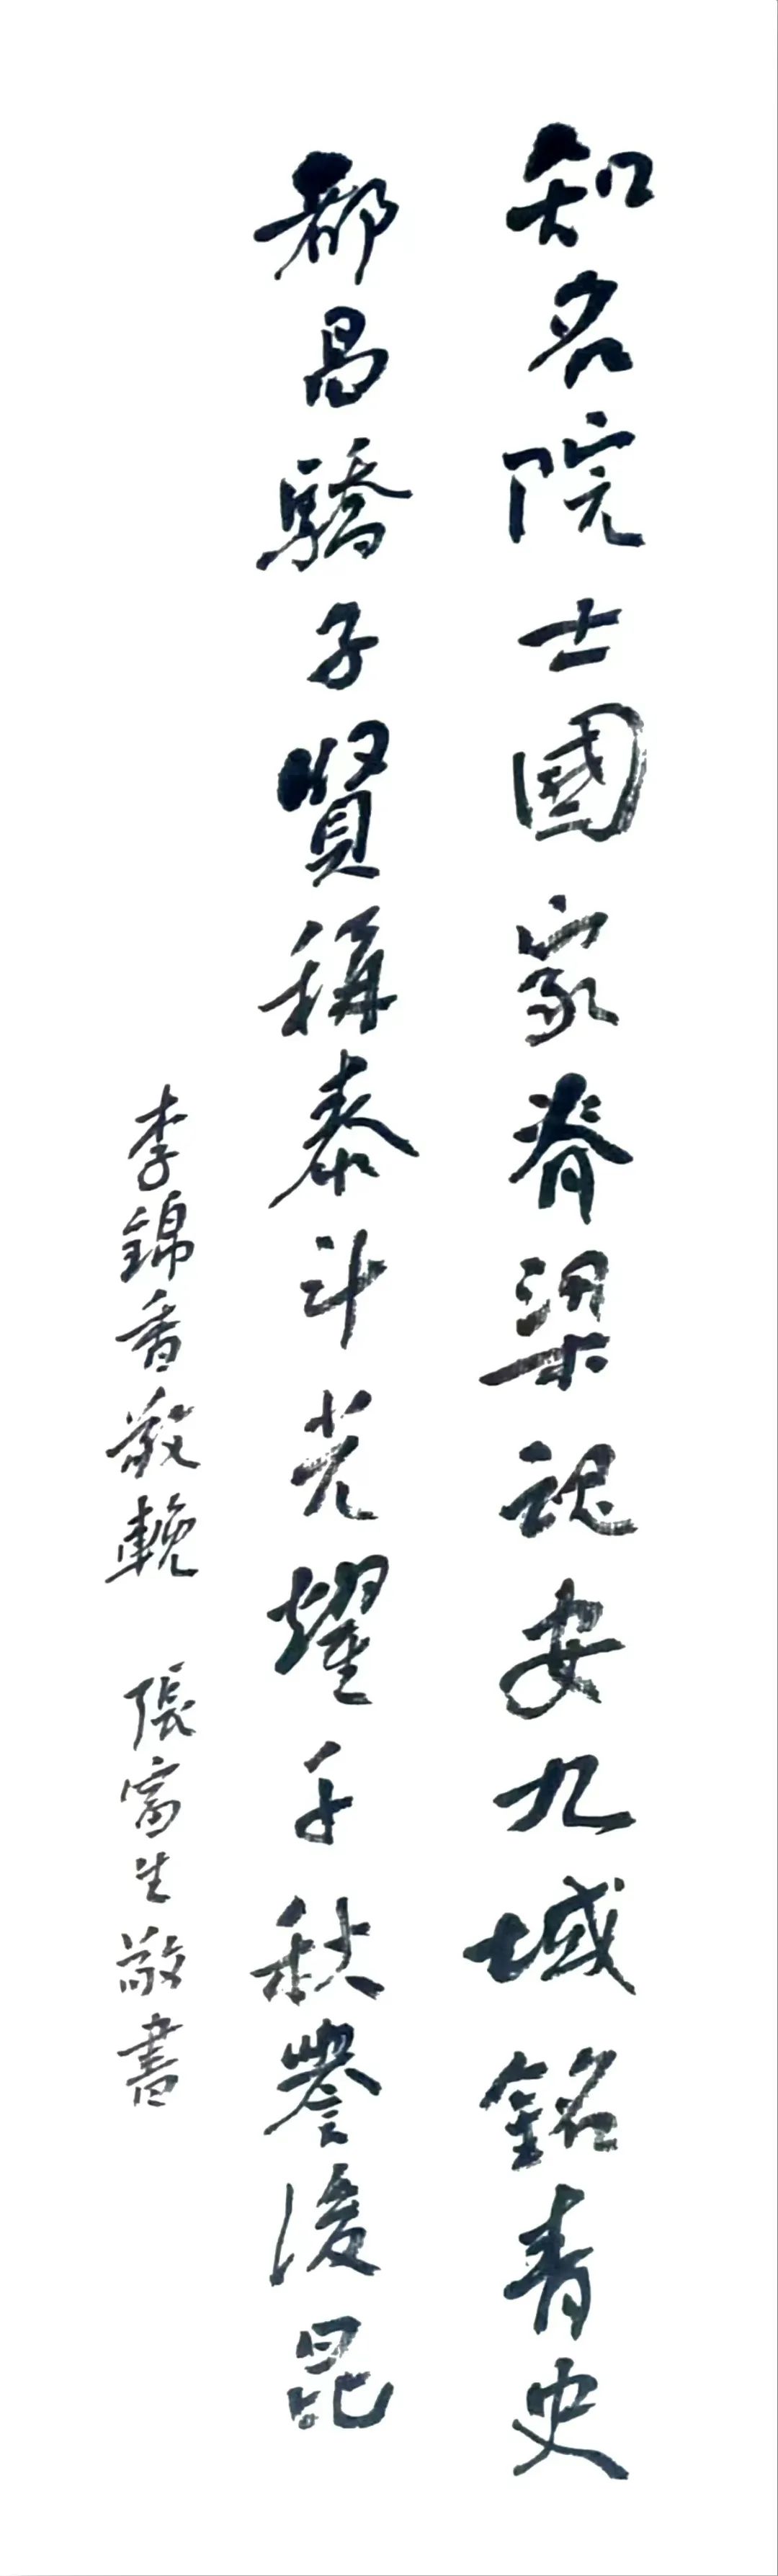 知名院士國家脊梁魂安九域銘青史
都昌驕子賢稱泰斗光耀千秋譽後昆
李錦香敬輓 張富生敬書